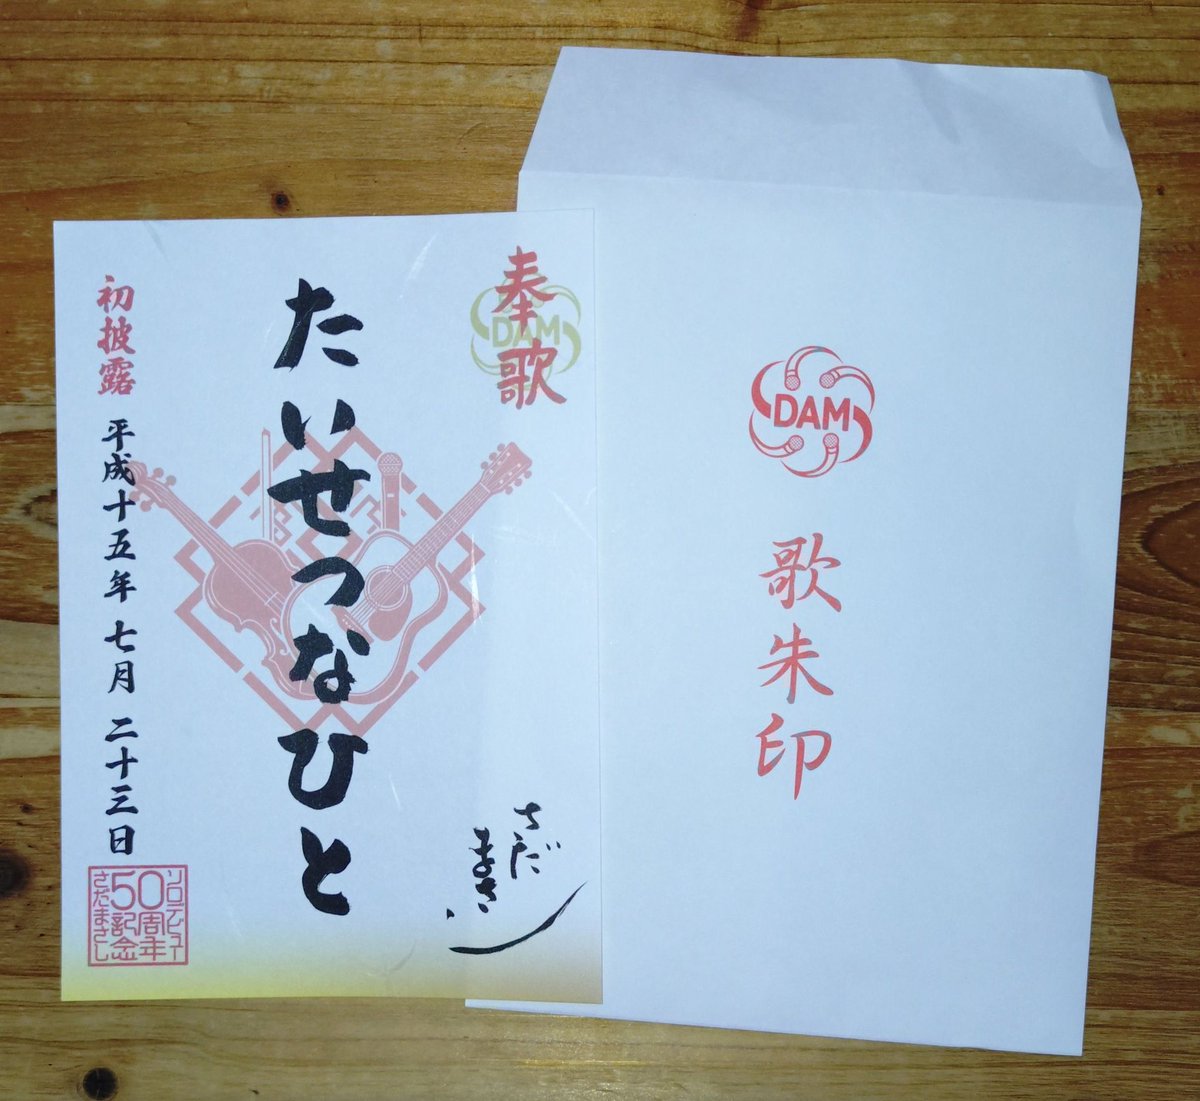 奉歌
DAM
たいせつなひと
さだ
まさし
初披露
平成十五年 七月 二十三日
ソロデビュー
50周年
記念
さだまさし
DAM
歌朱印